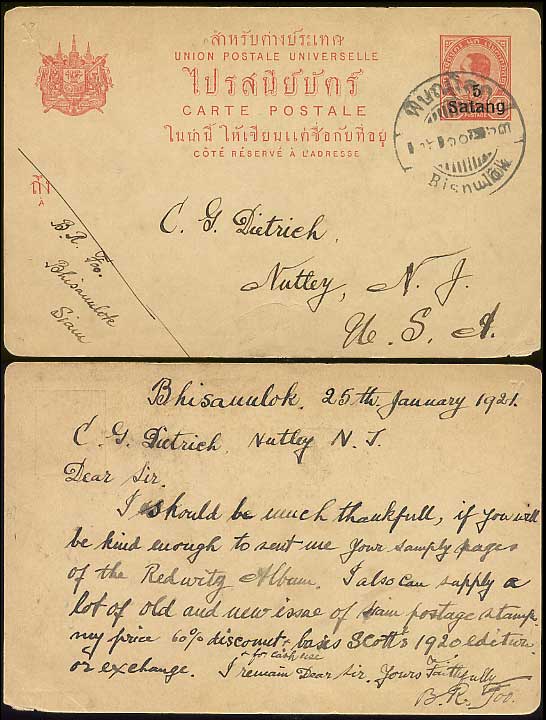 สำหรับต่างประเทศ
UNION POSTALE UNIVERSELLE
ไปรสนียบัตร์
CARTE POSTALE
ในน่านี้ ให้เขียนแต่ชื่อกับที่อยู่
CÔTÉ RÉSERVÉ À L'ADRESSE
5
Satang
POSTAGE
ถึง
A
B. R. Foo.
Bhisanulok
Siam
C. G. Dietrich,
Nutley, N. J.
U. S. A.
Bhisanulok, 25th January 1921.
C. G. Dietrich, Nutley N. J.
Dear Sir.
I should be much thankfull, if you will
be kind enough to sent me your samply pages
of the Redwitz Album. I also can supply a
lot of old and new issae of siam postage stamp
my price 60% discount + basis Scott's 1920 edition
+ for cash use
or exchange. I remain Dear Sir. Yours Faithfully
B. R. Foo.